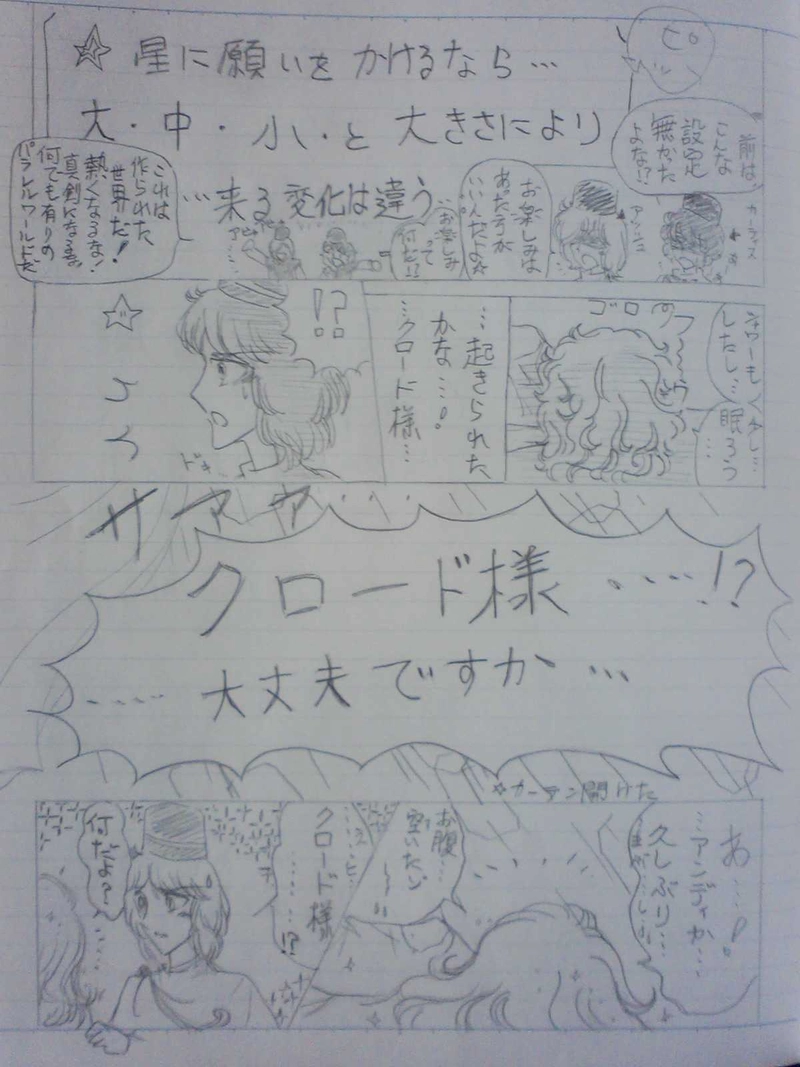 ☆ 星に願いをかけるなら…
大・中・小・と大きさにより
…来る変化は違う
ピ
前は、
こんな
設定
無かた
よな!?
カーラス
アンニ
お楽しみは
あったほうが
いいんだよ☆
お楽しみ
って
何だ!?
これは
作られた
世界だ!
熱くなるな!
真剣になるな
何でも有りの
パラレルワールドだ
シャワーも
したし…
少し…
眠ろう
…
ゴロ
…起きられた
かな…!
…クロード様…
!?
ドキ
☆
サアァ…
クロード様…!?
…大丈夫ですか…
☆カーテン開けた
あ…!
…アンディか…
久しぶり…
お腹…
空いたぞ
クロード様
…!?
何だよ?
…